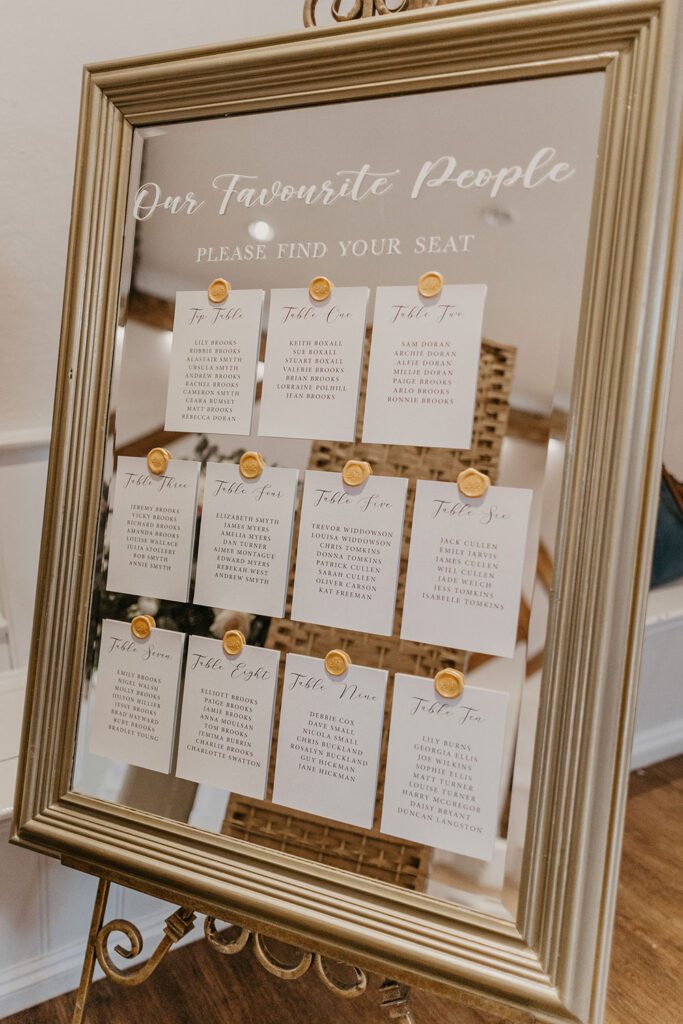 Our Favourite People
PLEASE FIND YOUR SEAT
Top Table
LILY BROOKS
ROBBIE BROOKS
ALASTAIR SMYTH
URSULA SMYTH
ANDREW BROOKS
RACHEL BROOKS
CAMERON SMYTH
CEARA RUMSEY
MATT BROOKS
REBECCA DORAN
Table One
KEITH BOXALL
SUE BOXALL
STUART BOXALL
VALERIE BROOKS
BRIAN BROOKS
LORRAINE POLHILL
JEAN BROOKS
Table Two
SAM DORAN
ARCHIE DORAN
ALFIE DORAN
MILLIE DORAN
PAIGE BROOKS
ARLO BROOKS
RONNIE BROOKS
Table Three
JEREMY BROOKS
VICKY BROOKS
RICHARD BROOKS
AMANDA BROOKS
LOUISE WALLACE
JULIA STOLLERY
BOB SMYTH
ANNIE SMYTH
Table Four
ELIZABETH SMYTH
JAMES MYERS
AMELIA MYERS
DAN TURNER
AIMEE MONTAGUE
EDWARD MYERS
REBEKAH WEST
ANDREW SMYTH
Table Five
TREVOR WIDDOWSON
LOUISA WIDDOWSON
CHRIS TOMKINS
DONNA TOMKINS
PATRICK CULLEN
SARAH CULLEN
OLIVER CARSON
KAT FREEMAN
Table Six
JACK CULLEN
EMILY JARVIS
JAMES CULLEN
WILL CULLEN
JADE WELCH
JESS TOMKINS
ISABELLE TOMKINS
Table Seven
EMILY BROOKS
NIGEL WALSH
MOLLY BROOKS
JOLYON HILLIER
JESSY BROOKS
BRAD HAYWARD
RUBY BROOKS
BRADLEY YOUNG
Table Eight
ELLIOTT BROOKS
PAIGE BROOKS
JAMIE BROOKS
ANNA MOULSAN
TOM BROOKS
JEMIMA BURRIN
CHARLIE BROOKS
CHARLOTTE SWATTON
Table Nine
DEBBIE COX
DAVE SMALL
NICOLA SMALL
CHRIS BUCKLAND
ROSALYN BUCKLAND
GUY HICKMAN
JANE HICKMAN
Table Ten
LILY BURNS
GEORGIA ELLIS
JOE WILKINS
SOPHIE ELLIS
MATT TURNER
LOUISE TURNER
HARRY MCGREGOR
DAISY BRYANT
DUNCAN LANGSTON